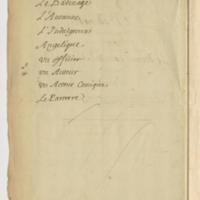 Le Badinage
L'Avanture
L'Indulgence
Angelique
un officier
un Acteur
un Acteur Comique
Le Parterre